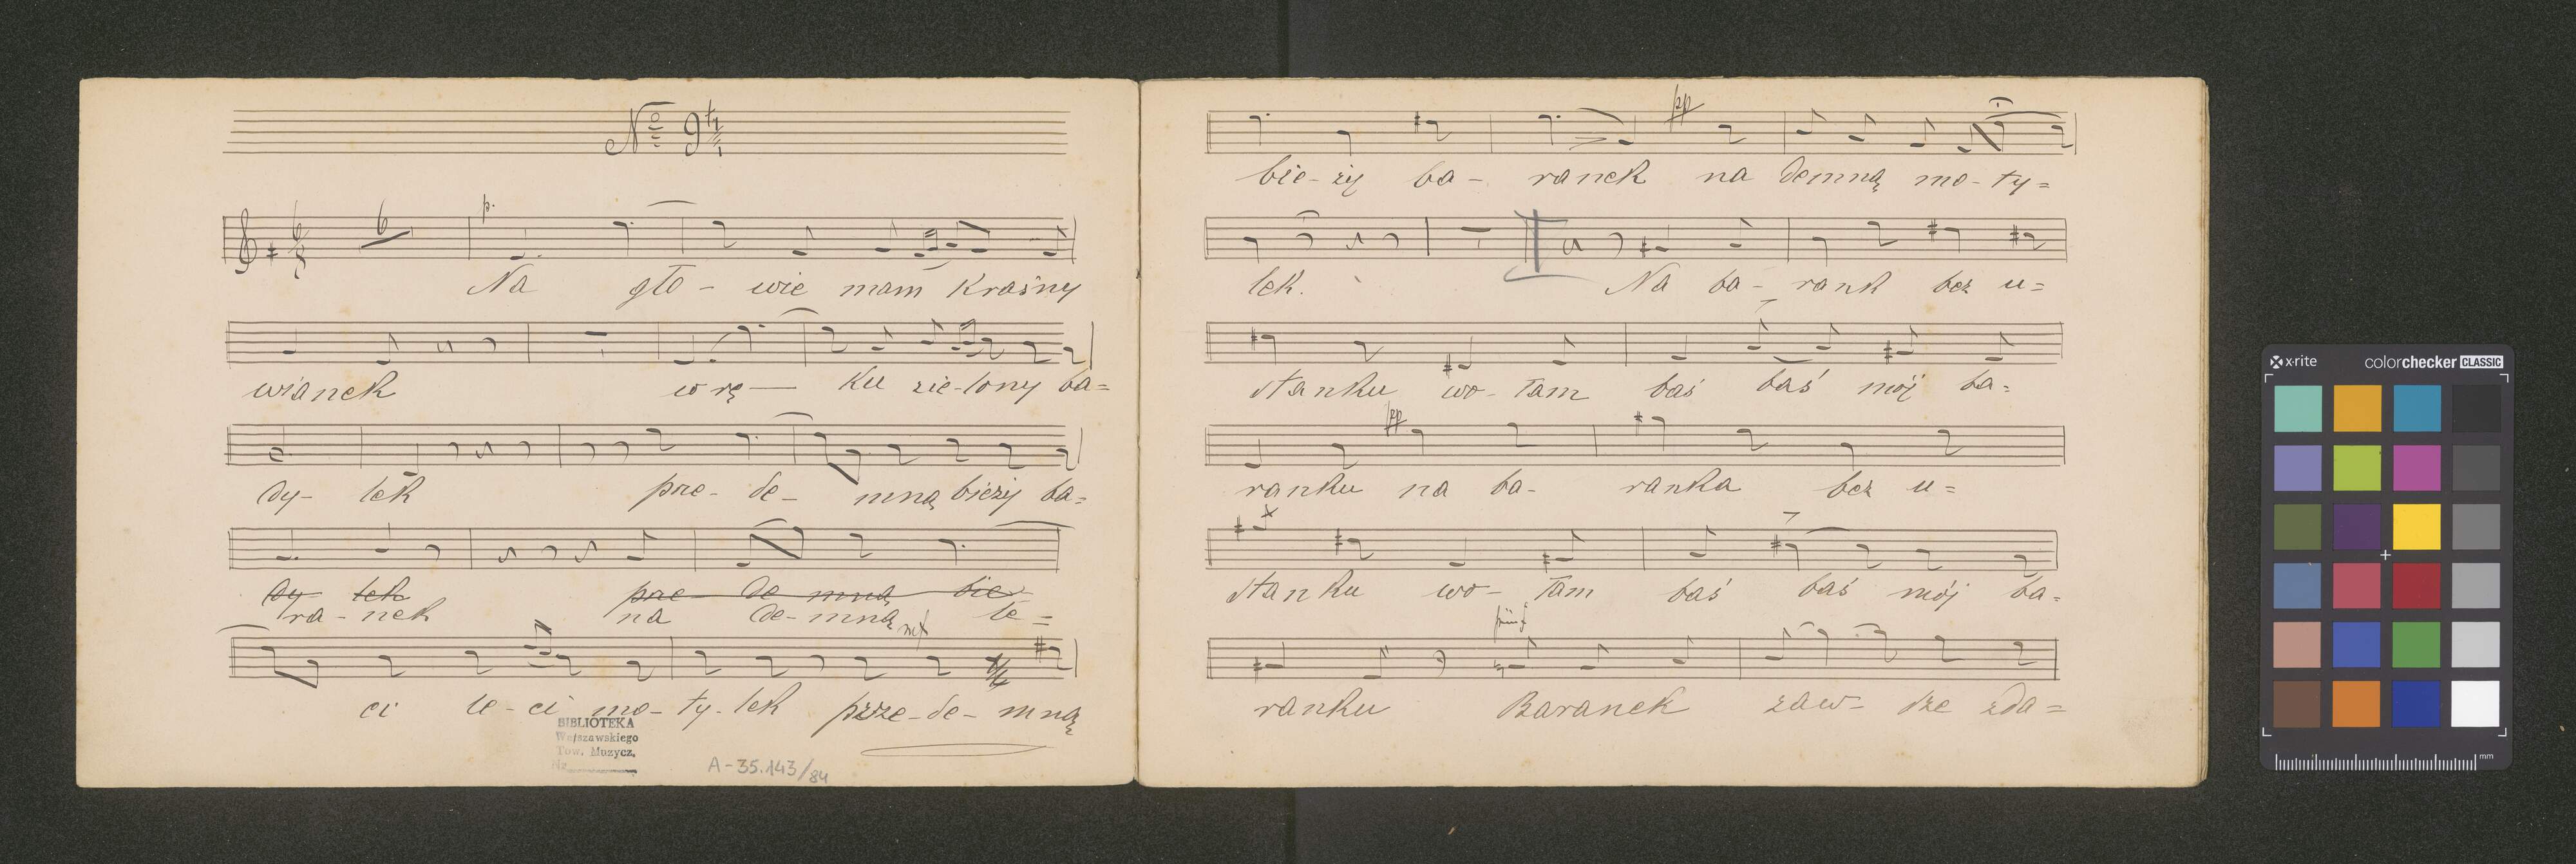 No 9
6
p.
Na gło- wie mam kraśny
wianek w rę— ku zie-lony ba=
dy- lek prze- de- mną bieży ba=
dy- lek prze de mną bie
ra- nek na de-mną le=
mf
ci le- ci mo- ty- lek prze-de- mną
BIBLIOTEKA
Warszawskiego
Tow. Muzycz.
Nr
A-35.143/84
pp
bie- ży ba- ranek na demną mo- ty=
lek. Na ba- rank bez u=
stanku wo- łam baś baś mój ba=
pp
ranku na ba- ranka bez u=
stanku wo- łam baś baś mój ba=
ranku Baranek zaw- sze zda=
x-rite colorchecker CLASSIC
mm